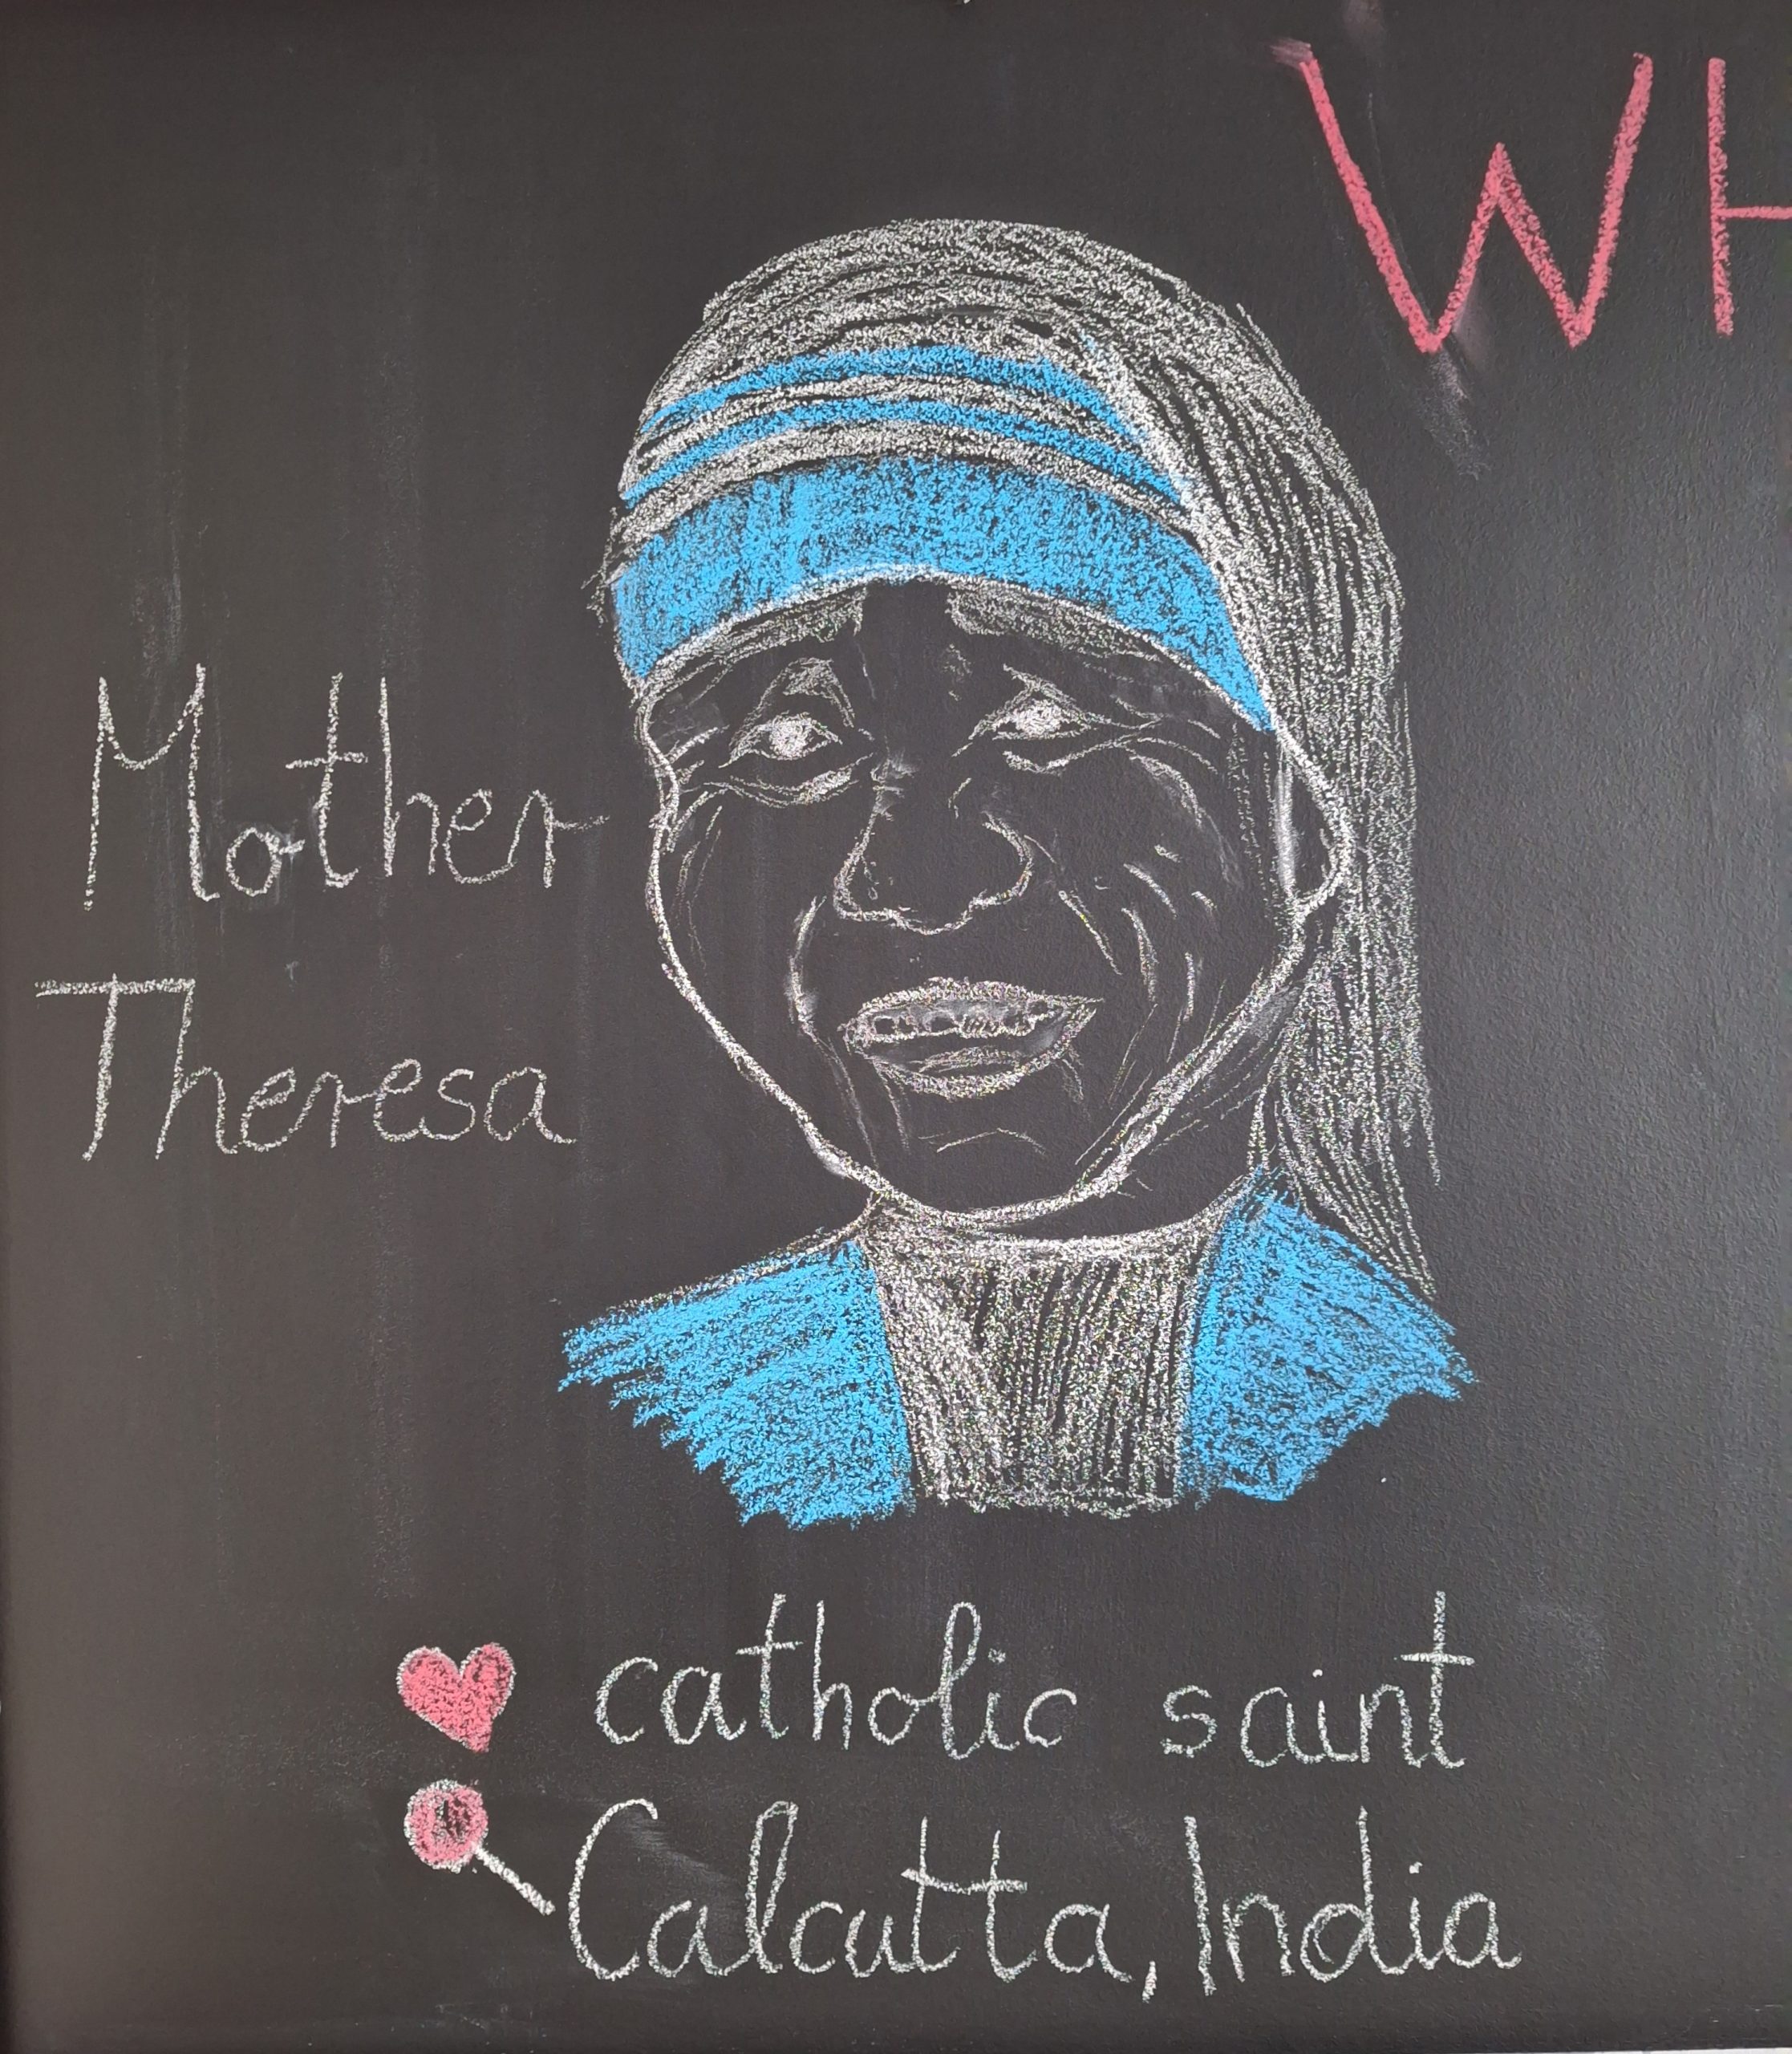 WH
Mother
Theresa
catholic saint
Calcutta, India